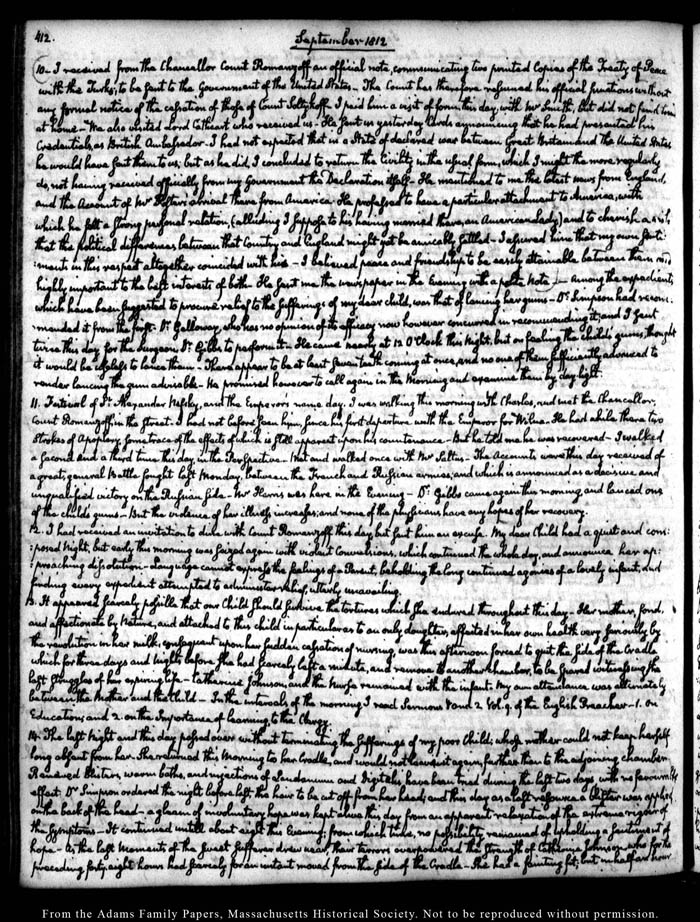 412.
September 1812
10. I received from the Chancellor Count Romanzoff an official note, communicating two printed Copies of the Treaty of Peace
with the Turks, to be sent to the Government of the United States — The Count has therefore resumed his official functions without
any formal notice of the cessation of those of Count Soltykoff. I paid him a visit of form this day, with Mr Smith, but did not find him
at home — We also visited Lord Cathcart who received us — He sent us yesterday Cards announcing that he had presented his
Credentials, as British Ambassador — I had not expected that in a State of declared war between Great Britain and the United States
he would have sent them to us; but as he did, I concluded to return the Civility in the usual form, which I might the more regularly
do, not having received officially from my Government the Declaration itself — He mentioned to me the latest news from England,
and the Account of Mr Foster's arrival there from America. He professed to have a particular attachment to America, with
which he felt a strong personal relation, (alluding I suppose to his having married there, an American Lady) and to cherish a wish,
that the political differences between that Country and England might yet be amicably settled — I assured him that my own senti-
:ments in this respect altogether coincided with his — I believed peace and friendship to be easily attainable between them and
highly important to the best interests of both. He sent me the newspaper in the Evening with a polite Note — Among the expedients
which have been suggested to procure relief to the sufferings of my dear child, was that of lancing her gums — Dr Simpson had recom-
mended it from the first. Dr Galloway, who has no opinion of its efficacy now however concurred in recommending it; and I sent
twice this day for the surgeon Dr Gibbs to perform it — He came nearly at 12 O'Clock this Night, but on feeling the child's gums, thought
it would be useless to lance them — There appear to be at least seven teeth coming at once, and no one of them sufficiently advanced to
render lancing the gum advisable — He promised however to call again in the Morning and examine them by day light.
11. Festival of St. Alexander Nefsky, and the Emperor's name day. I was walking this morning with Charles, and met the Chancellor
Count Romanzoff, in the street. I had not before seen him since his first departure with the Emperor for Wilna. He had while there two
Strokes of Apoplexy, some trace of the effects of which is still apparent upon his countenance — But he told me he was recovered — I walked
a second and a third time this day in the Perspective. Met and walked once with Mr Saltus — The Accounts were this day received of
a great general Battle fought last Monday, between the French and Russian armies, and which is announced as a decisive, and
unqualified victory on the Russian side — Mr Harris was here in the Evening — Dr Gibbs came again this morning, and lanced one
of the child's gums — But the violence of her illness increases, and none of the physicians have any hopes of her recovery.
12. I had received an invitation to dine with Count Romanzoff this day but sent him an excuse. My dear Child had a quiet and com-
:posed Night, but early this morning was seized again with violent Convulsions, which continued the whole day, and announce her ap-
:proaching dissolution — Language cannot express the feelings of a Parent, beholding the long continued agonies of a lovely infant, and
finding every expedient attempted to administer relief, utterly unavailing.
13. It appeared scarcely possible that our Child should survive the tortures which she endured throughout this day — Her mother, fond,
and affectionate by Nature, and attached to this child in particular as to an only daughter, affected in her own health very seriously by
the revolution in her milk, consequent upon her sudden cessation of nursing, was this afternoon forced to quit the side of the Cradle
which for three days and nights before she had scarcely left a minute, and remove to another chamber, to be spared witnessing the
last struggles of her expiring life — Catherine Johnson, and the Nurse remained with the infant. My own attendance was alternately
between the Mother and the Child — In the intervals of the morning I read Sermons 1 and 2. Vol. 9. of the English Preacher — 1. on
Education, and 2. on the Importance of learning, to the Clergy.
14. The last Night and this day passed over without terminating the sufferings of my poor Child; whose mother could not keep herself
long absent from her. She returned this Morning to her Cradle, and would not leave it again, farther than to the adjoining chamber.
Renewed Blisters, warm baths, and injections of Laudanum and Digitalis, have been tried during the last two days with no favourable
effect. Dr Simpson ordered the night before last, the hair to be cut off from her head; and this day as a last resource a Blister was applied
on the back of the head — a gleam of involuntary hope was kept alive this day from an apparent relaxation of the extreme rigour of
the symptoms — It continued untill about eight this Evening; from which time, no possibility remained of upholding a sentiment of
hope — As the last Moments of the sweet sufferer drew near, their terrors overpowered the strength of Catherine Johnson, who for the
preceding forty eight hours had scarcely for an instant moved from the side of the Cradle — She had a fainting fit; but in half an hour
From the Adams Family Papers, Massachusetts Historical Society. Not to be reproduced without permission.